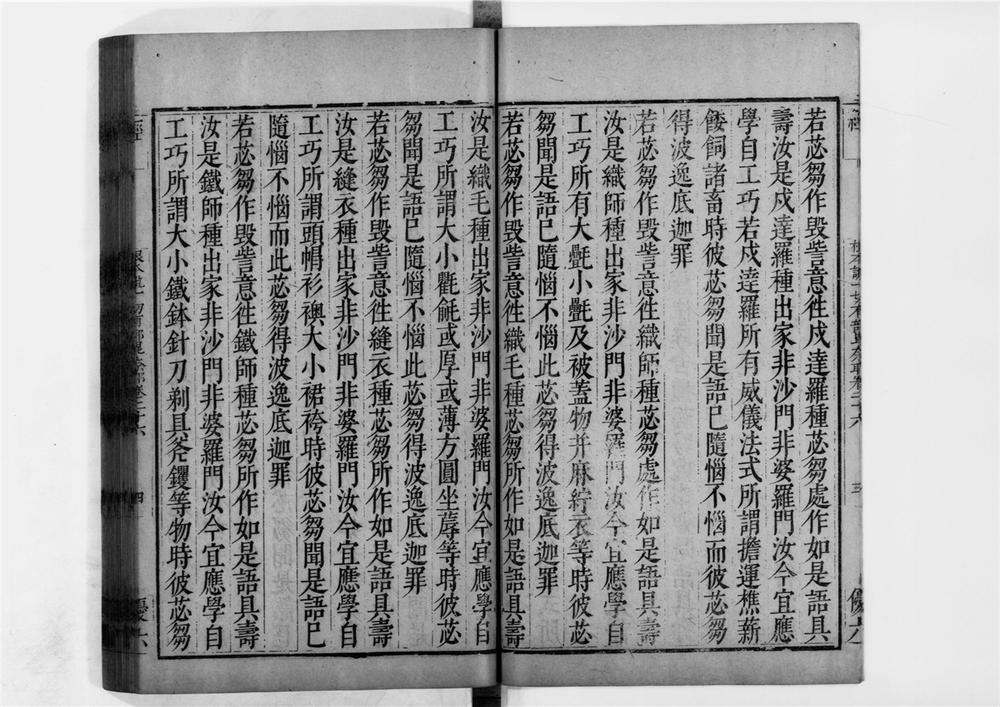 若苾芻作毀訾意徃戍達羅種苾芻處作如是語具
壽汝是戍達羅種出家非沙門非婆羅門汝今宜應
學自工巧若戍達羅所有威儀法式所謂擔運樵薪
餧飼諸畜時彼苾芻聞是語已隨惱不惱而彼苾芻
得波逸底迦罪
若苾芻作毀訾意徃織師種苾芻處作如是語具壽
汝是織師種出家非沙門非婆羅門汝今宜應學自
工巧所有大㲲小㲲及被蓋物并麻紵衣等時彼苾
芻聞是語已隨惱不惱此苾芻得波逸底迦罪
若苾芻作毀訾意徃織毛種苾芻所作如是語具壽
汝是織毛種出家非沙門非婆羅門汝今宜應學自
工巧所謂大小氍毹或厚或薄方圓坐蓐等時彼苾
芻聞是語已隨惱不惱此苾芻得波逸底迦罪
若苾芻作毀訾意徃縫衣種苾芻所作如是語具壽
汝是縫衣種出家非沙門非婆羅門汝今宜應學自
工巧所謂頭帽衫襖大小裙袴時彼苾芻聞是語已
隨惱不惱而此苾芻得波逸底迦罪
若苾芻作毀訾意徃鐵師種苾芻所作如是語具壽
汝是鐵師種出家非沙門非婆羅門汝今宜應學自
工巧所謂大小鐵鉢針刀剃具斧钁等物時彼苾芻